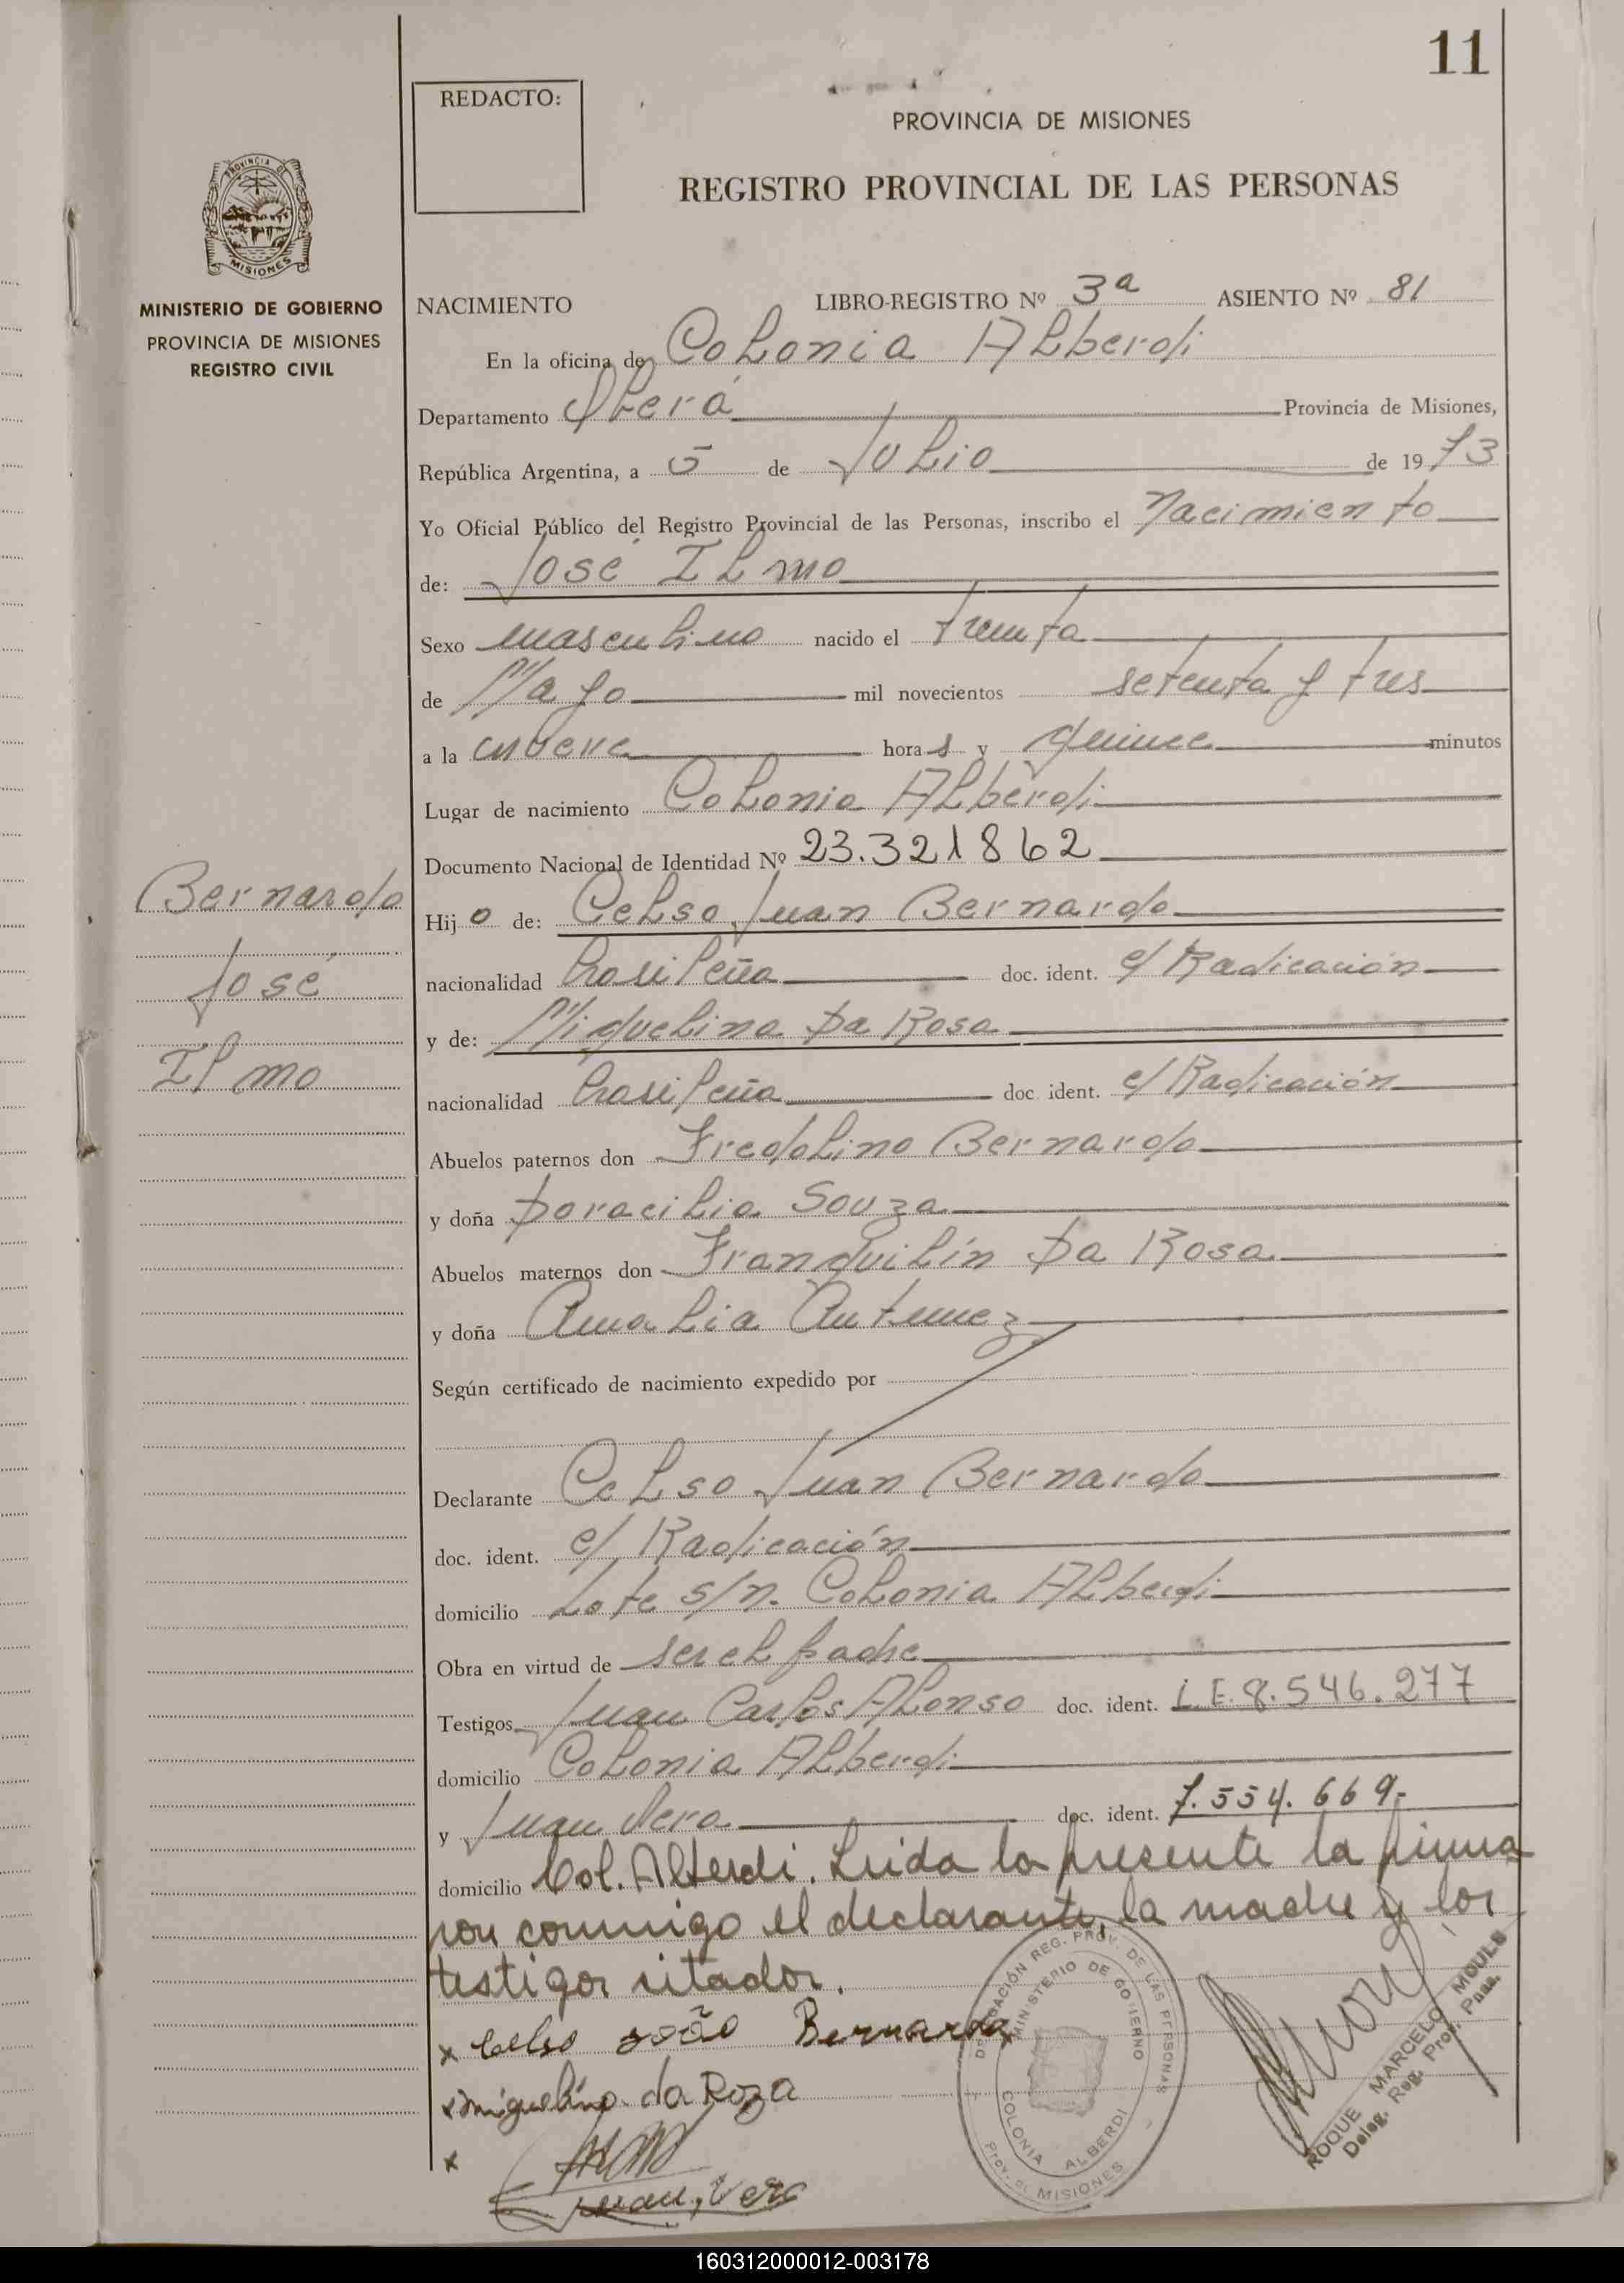 11
REDACTO:
PROVINCIA DE MISIONES
REGISTRO PROVINCIAL DE LAS PERSONAS
PROVINCIA DE
MISIONES
MINISTERIO DE GOBIERNO
PROVINCIA DE MISIONES
REGISTRO CIVIL
NACIMIENTO LIBRO-REGISTRO Nº 3ª ASIENTO Nº 81
En la oficina de Colonia Alberdi
Departamento Oberá Provincia de Misiones,
República Argentina, a 5 de Julio de 1973
Yo Oficial Público del Registro Provincial de las Personas, inscribo el Nacimiento
de: José Ilmo
Sexo masculino nacido el treinta
de Mayo mil novecientos setenta y tres
a la nueve horas y quince minutos
Lugar de nacimiento Colonia Alberdi
Documento Nacional de Identidad Nº 23.321862
Bernardo
José
Ilmo
Hijo de: Celso Juan Bernardo
nacionalidad brasileña doc. ident. c/ Radicación
y de: Miguelina Da Rosa
nacionalidad brasileña doc. ident. c/ Radicación
Abuelos paternos don Fredolino Bernardo
y doña Doracilia Souza
Abuelos maternos don Franquilín Da Rosa
y doña Amalia Antunez
Según certificado de nacimiento expedido por
Declarante Celso Juan Bernardo
doc. ident. c/ Radicación
domicilio Lote s/n. Colonia Alberdi
Obra en virtud de ser el padre
Testigos Juan Carlos Alonso doc. ident. L.E. 8.546.277
domicilio Colonia Alberdi
y Juan Vera doc. ident. 7.554.669.-
domicilio Col. Alberdi. Leida la presente la firma
con conmigo el declarante, la madre y los
testigos citados.
x Celso João Bernardo
x miguelina da Roza
x
Juan, Vera
DELEGACIÓN REG. PROV. DE LAS PERSONAS
MINISTERIO DE GOBIERNO
COLONIA ALBERDI
Prov. DE MISIONES
ROQUE MARCELO MOULS
Deleg. Reg. Prov. Pnas.
160312000012-003178